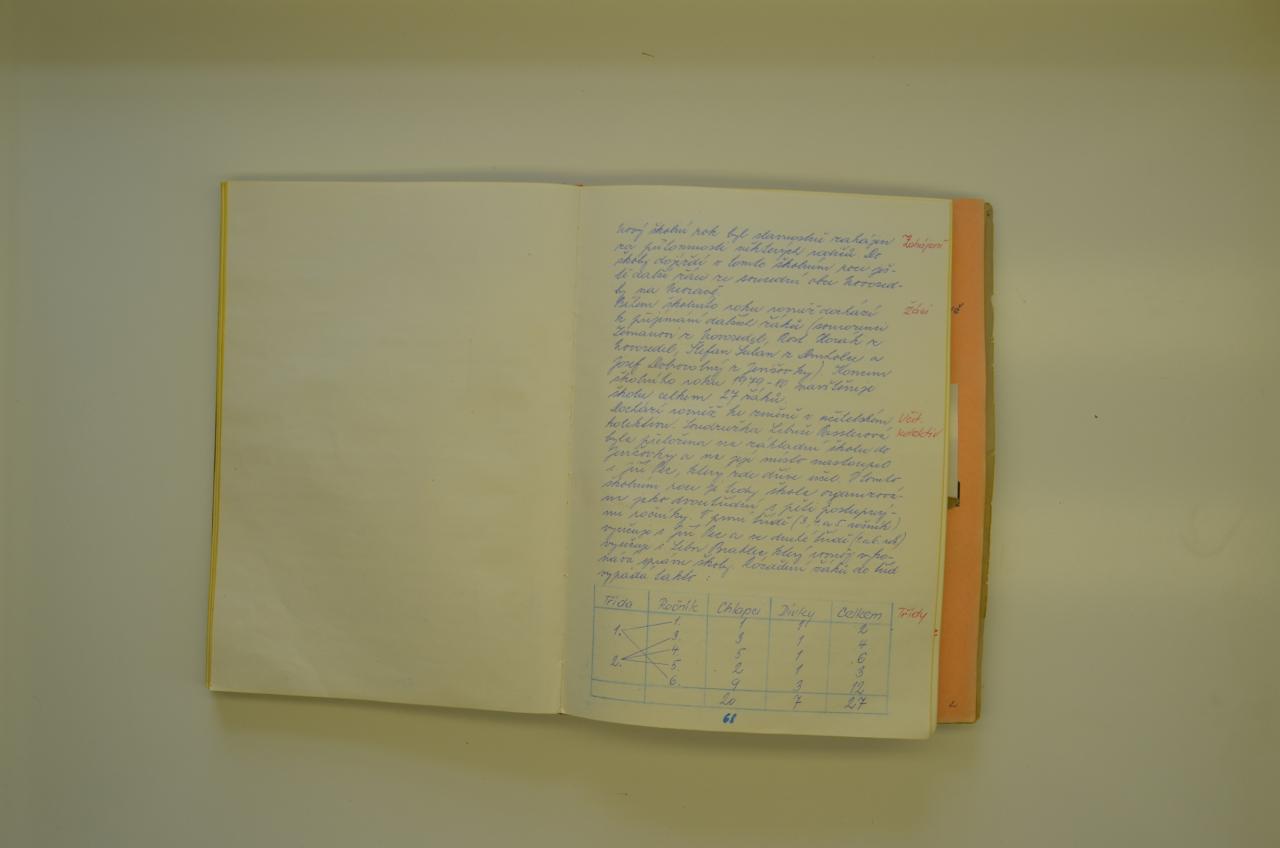 Nový školní rok byl slavnostně zahájen
Zahájení
za přítomnosti některých rodičů. Do
školy dojíždí v tomto školním roce ješ-
tě další žáci ze sousední obce Novosed-
ly na Moravě.
Během školního roku rovněž dochází
Žáci
k přijímání dalších žáků (sourozenci
Zemanovi z Novosedel, Rost. Horák z
Novosedel, Štefan z Drnholce a
Josef Dobrovolný z Jevišovky). Koncem
školního roku 1979-80 navštěvuje
školu celkem 27 žáků.
Dochází rovněž ke změně v učitelském
Učit.
kolektivu. Soudružka Libuše
kolektiv
byla přeložena na základní školu do
Jevišovky a na její místo nastoupil
s. Jiří Pec, který zde dříve učil. V tomto
školním roce je tedy škola organizová-
na jako dvoutřídní s pěti postupný-
mi ročníky. V první třídě (3., 4. a 5. ročník)
vyučuje s. Jiří Pec a ve druhé třídě (1. a 6. roč.)
vyučuje s. Libor který rovněž vyko-
nává správu školy. Rozdělení žáků do tříd
vypadá takto :
Třída Ročník Chlapci Dívky Celkem
Třídy
1. 1 1 2
1. 3. 3 1 4
4. 5 1 6
2. 5. 2 1 3
6. 9 3 12
20 7 27
68